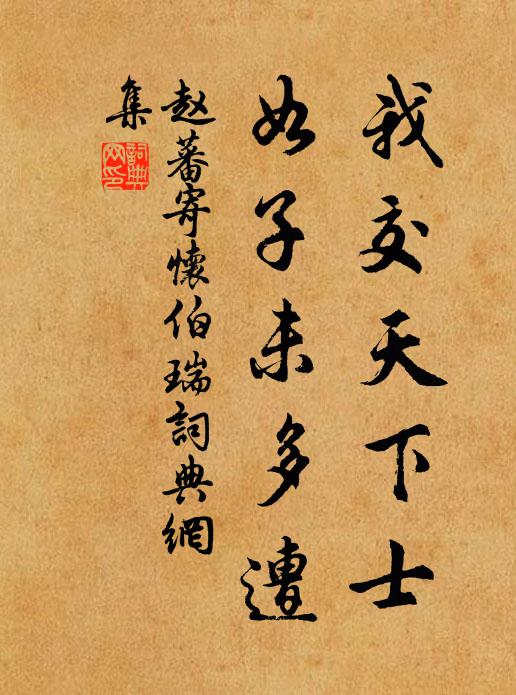 我交天下士
如子未多遭
赵蕃寄懷伯瑞詞典網
集
詞典
网印